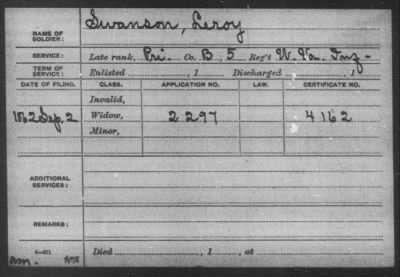 NAME OF SOLDIER: Swanson, Leroy
SERVICE: Late rank, Pri. Co. B, 5 Reg't W. Va. Inf-
TERM OF SERVICE: Enlisted , 1 Discharged , 1
DATE OF FILING. CLASS. APPLICATION NO. LAW. CERTIFICATE NO.
Invalid,
1862 Sep. 2 Widow, 2297 4162
Minor,
ADDITIONAL SERVICES:
REMARKS:
Died , 1 , at